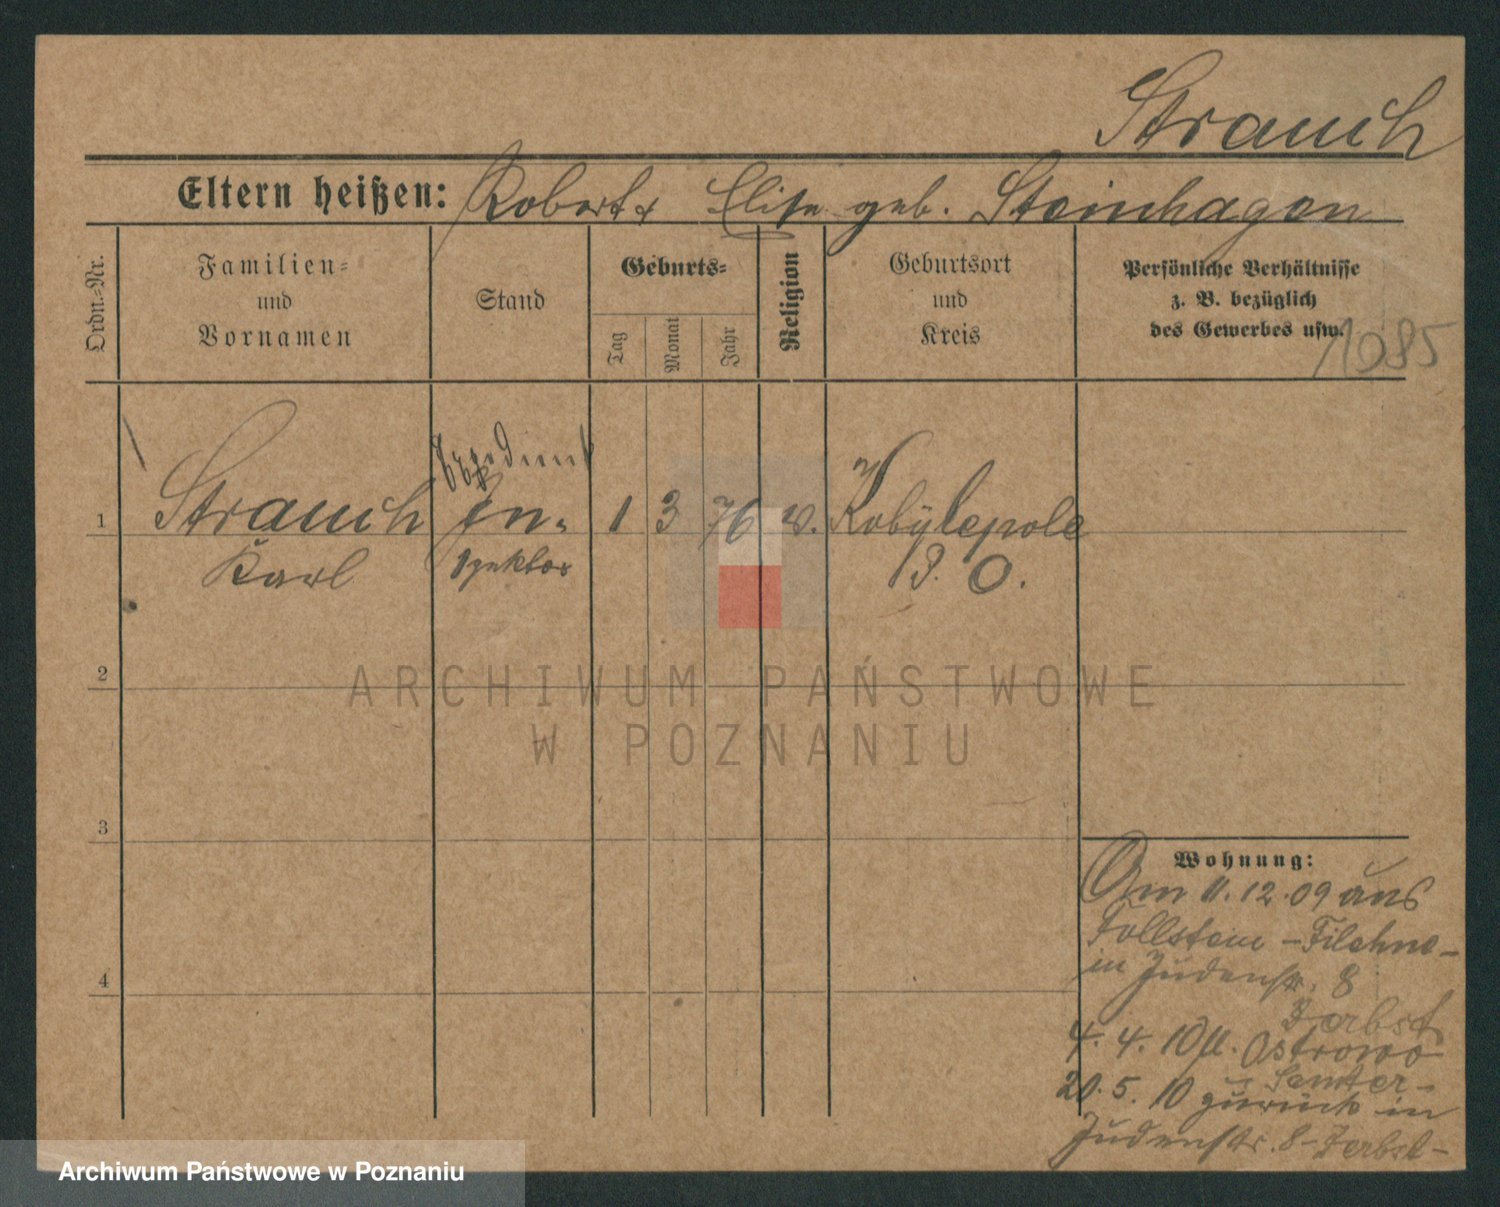 Strauch
Eltern heißen: Robert & Elise geb. Steinhagen
Ordn.-Nr.
Familien-
und
Vornamen
Stand
Geburts-
Tag
Monat
Jahr
Religion
Geburtsort
und
Kreis
Persönliche Verhältnisse
z. B. bezüglich
des Gewerbes usw.
1085
Expedient
1 Strauch In- 1 3 76 Kobylepole
Karl spektor P. O.
2
3
4
Wohnung:
Am 11. 12. 09 aus
Follstein - Filehne -
in Judenstr. 8
Zerbst
4. 4. 10 Ostrowo
Samter -
20. 5. 10 zurück in
Judenstr. 8 - Zerbst -
ARCHIWUM PAŃSTWOWE
W POZNANIU
Archiwum Państwowe w Poznaniu